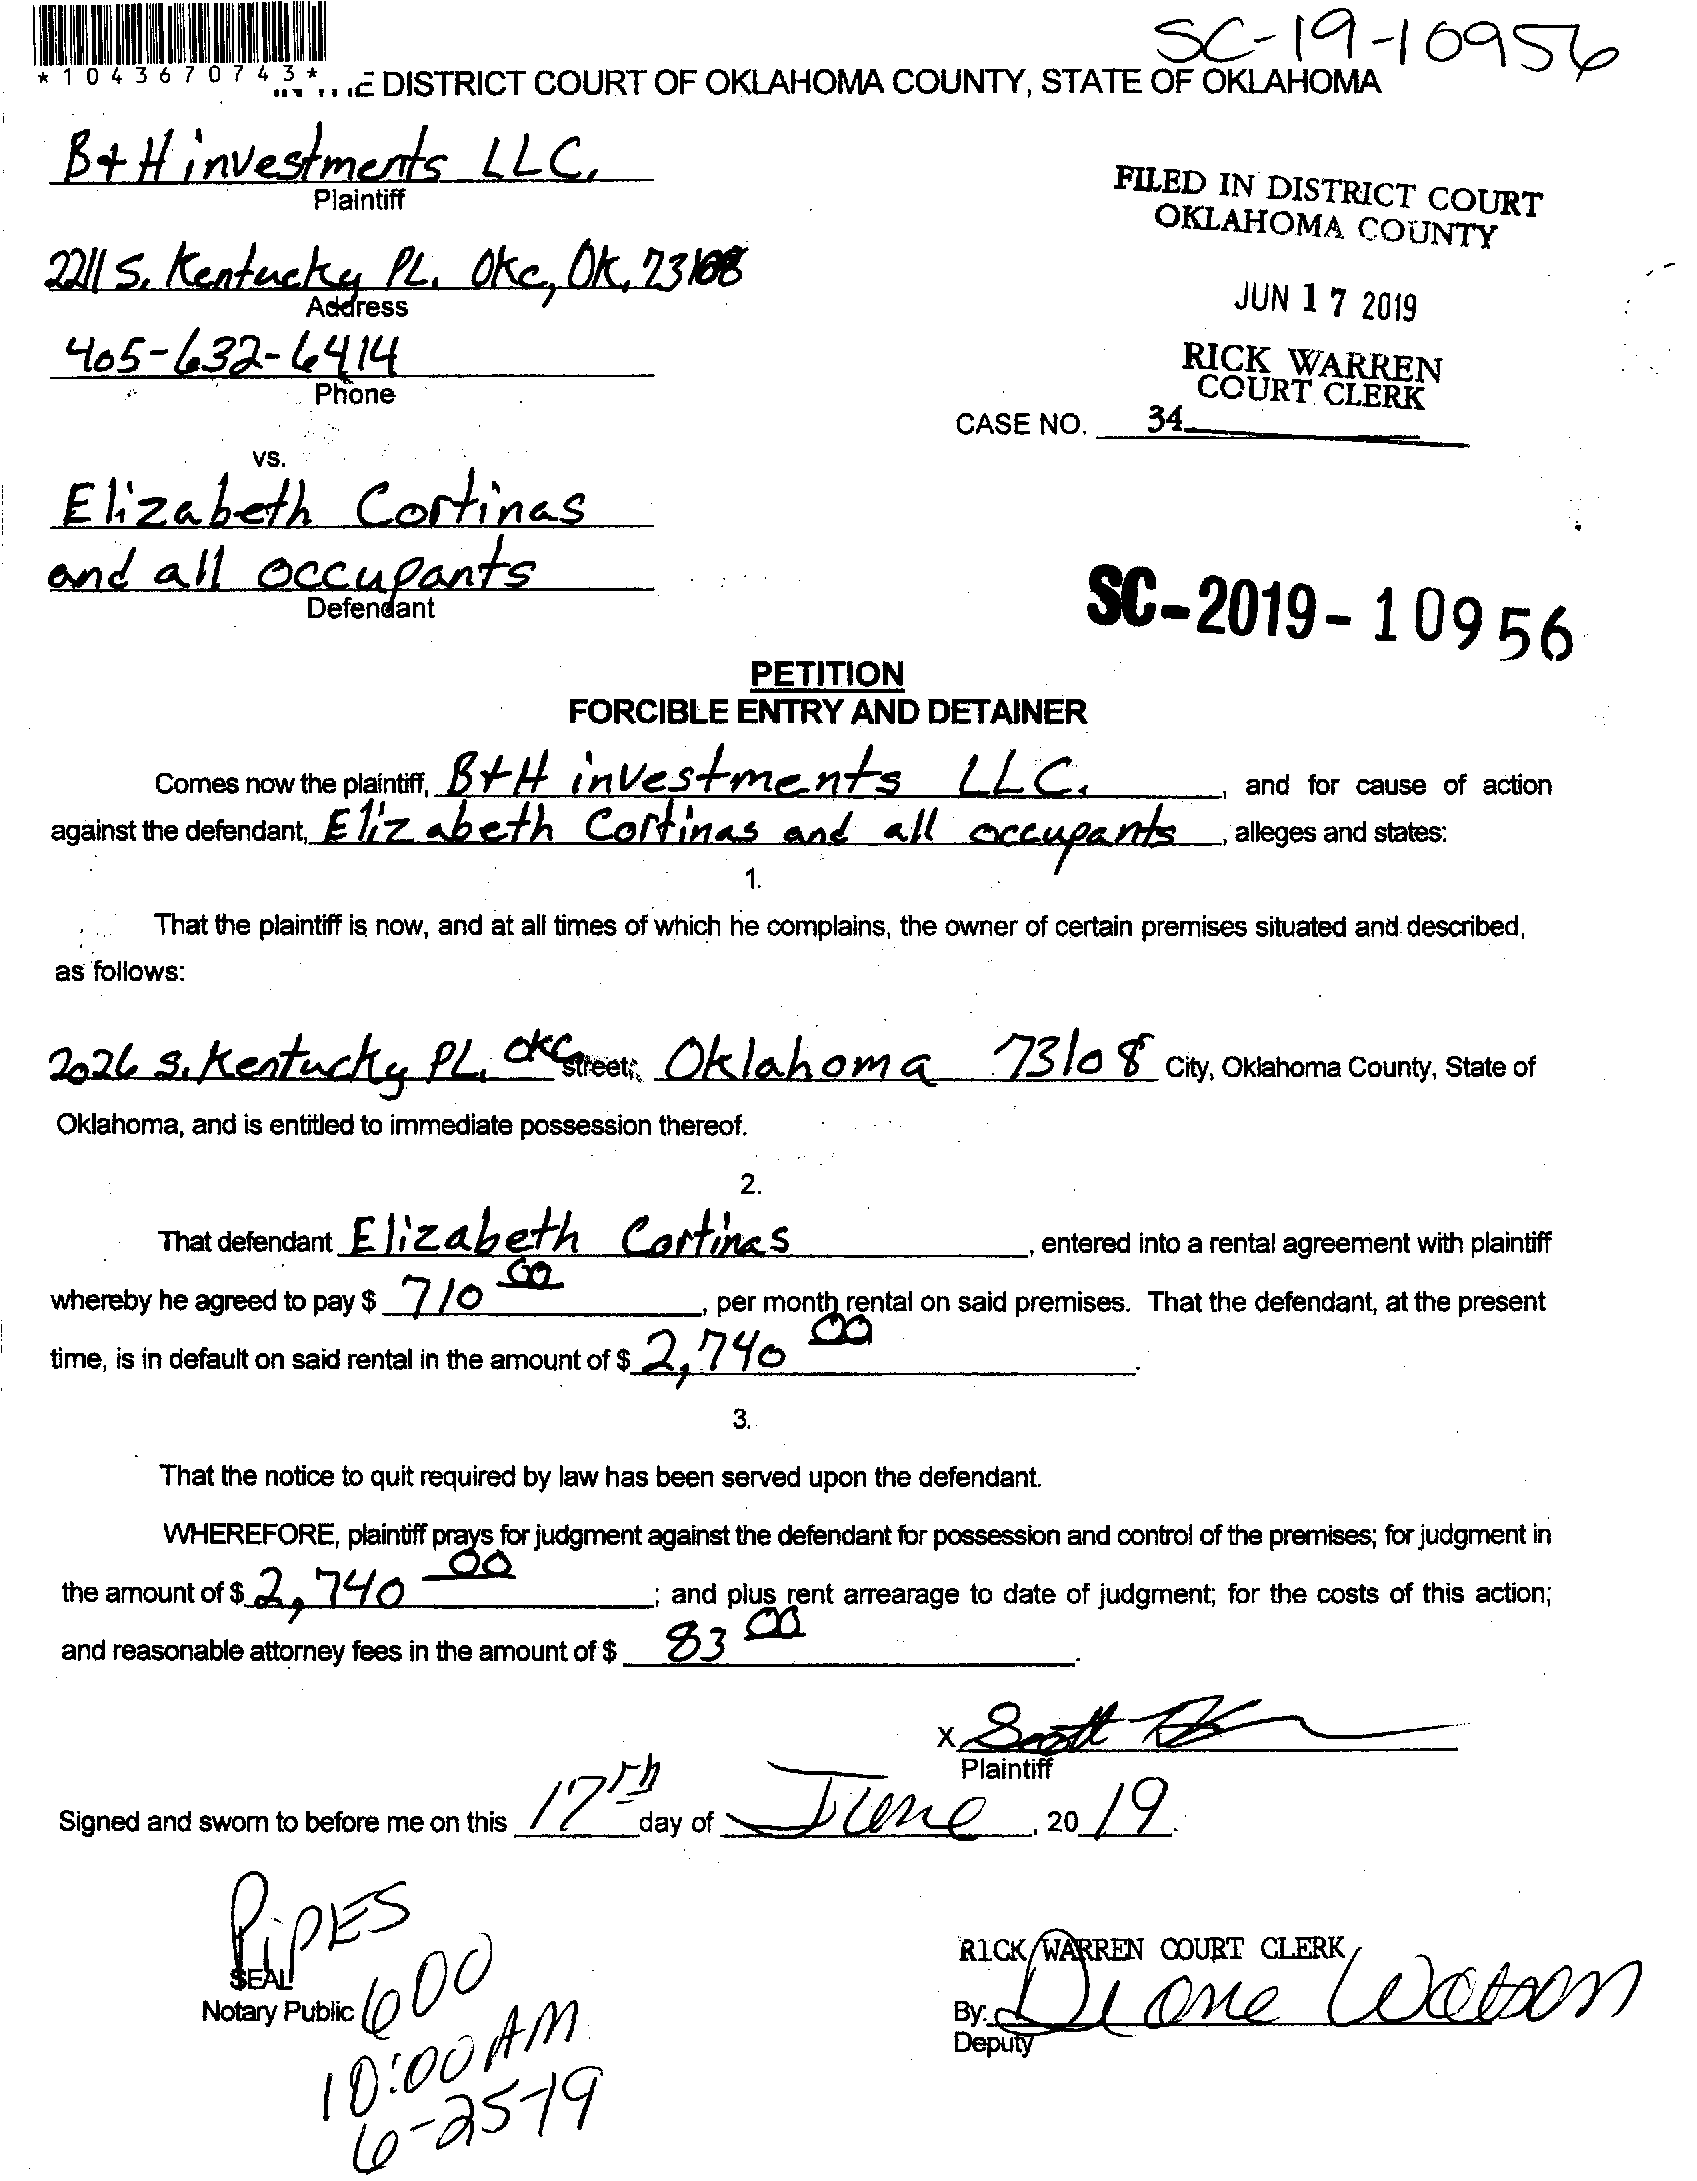 SC-19-10956
*1043670743*
DISTRICT COURT OF OKLAHOMA COUNTY, STATE OF OKLAHOMA
B+H investments LLC.
Plaintiff
FILED IN DISTRICT COURT
OKLAHOMA COUNTY
2211 S. Kentucky PL. Okc, OK, 73108
Address
JUN 17 2019
405-632-6414
Phone
RICK WARREN
COURT CLERK
CASE NO. 34
vs.
Elizabeth Cortinas
and all occupants
Defendant
SC-2019-10956
PETITION
FORCIBLE ENTRY AND DETAINER
Comes now the plaintiff, B+H investments LLC. , and for cause of action
against the defendant, Elizabeth Cortinas and all occupants , alleges and states:
1.
That the plaintiff is now, and at all times of which he complains, the owner of certain premises situated and described,
as follows:
2026 S. Kentucky PL. OKC Street; Oklahoma 73108 City, Oklahoma County, State of
Oklahoma, and is entitled to immediate possession thereof.
2.
That defendant Elizabeth Cortinas , entered into a rental agreement with plaintiff
whereby he agreed to pay $ 710 00 , per month rental on said premises. That the defendant, at the present
time, is in default on said rental in the amount of $ 2,740 00 .
3.
That the notice to quit required by law has been served upon the defendant.
WHEREFORE, plaintiff prays for judgment against the defendant for possession and control of the premises; for judgment in
the amount of $ 2,740 00 ; and plus rent arrearage to date of judgment; for the costs of this action;
and reasonable attorney fees in the amount of $ 83 00 .
X Scott
Plaintiff
Signed and sworn to before me on this 17th day of June , 20 19 .
PiPES
SEAL
Notary Public
600
10:00 AM
6-25-19
RICK WARREN COURT CLERK
By: Diane Watson
Deputy